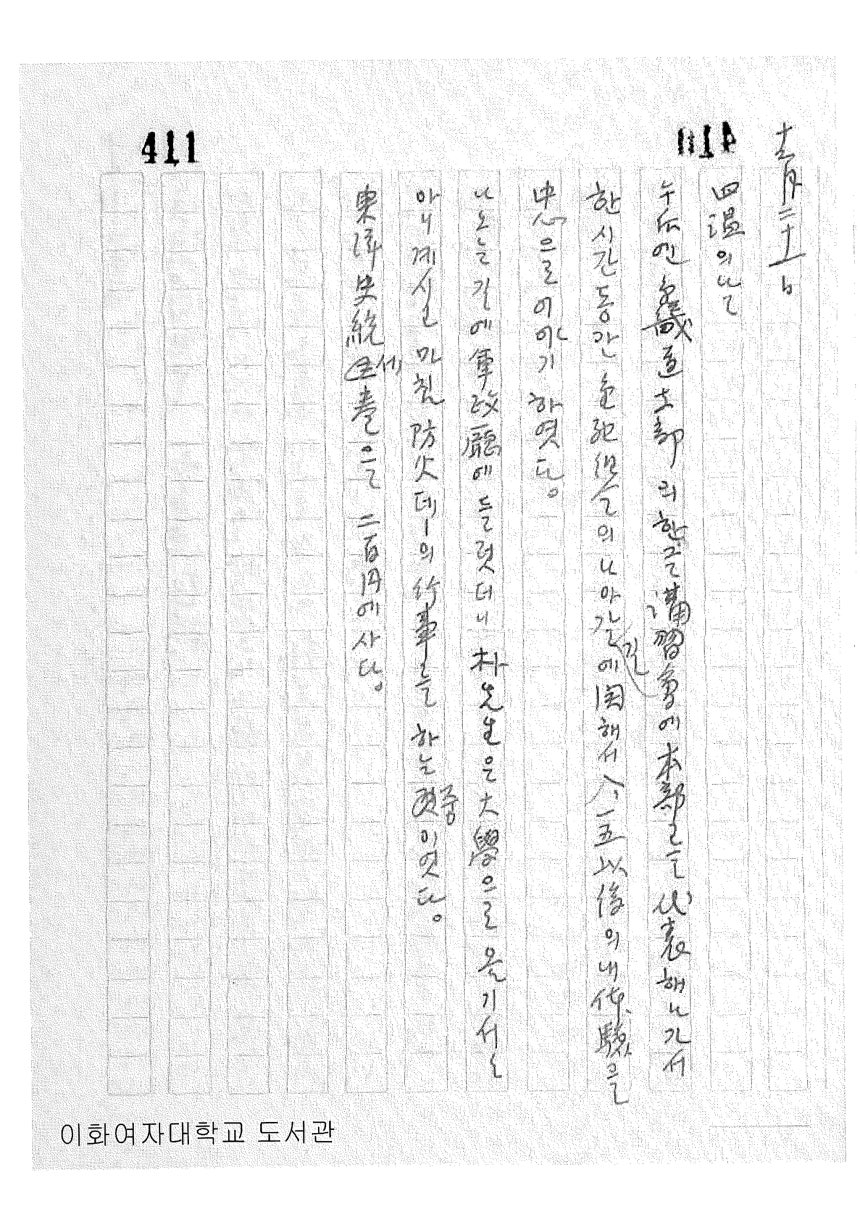 411
十一月二十一日
四溫의 나날
午后엔 道支部의 한글 講習會에 本部를 代表해 나가서
한 시간 동안 의 나아갈 길에 関해서 八·一五 以後의 내 体驗을
中心으로 이야기 하엿다。
나오는 길에 軍政廳에 들럿더니 朴先生은 大學으로 옴기서서
아니계시고 마침 防火데-의 行事를 하는 중이엿다。
東洋史統 세 卷을 二百円에 사다。
이화여자대학교 도서관